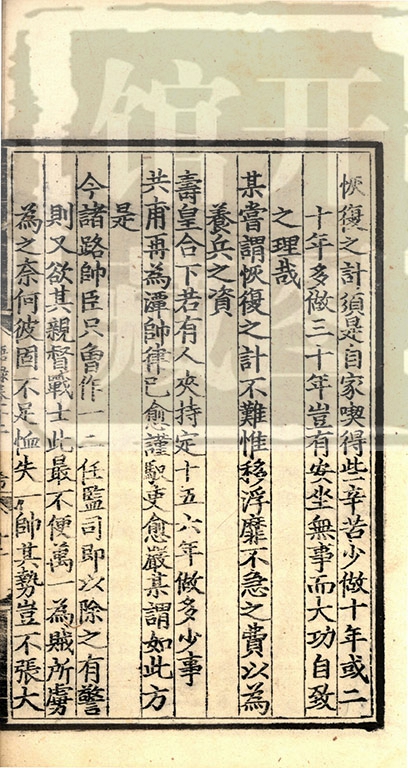 恢復之計須是自家喫得些辛苦少做十年或二
十年多做三十年豈有安坐無事而大功自致
之理哉
某嘗謂恢復之計不難惟移浮靡不急之費以為
養兵之資
壽皇合下若有人夾持定十五六年做多少事
共甫再為潭帥律己愈謹馭吏愈嚴某謂如此方
是
今諸路帥臣只會作一二任監司即以除之有警
則又欲其親督戰士此最不便萬一為賊所虜
為之奈何彼固不足恤失一帥其勢豈不張大